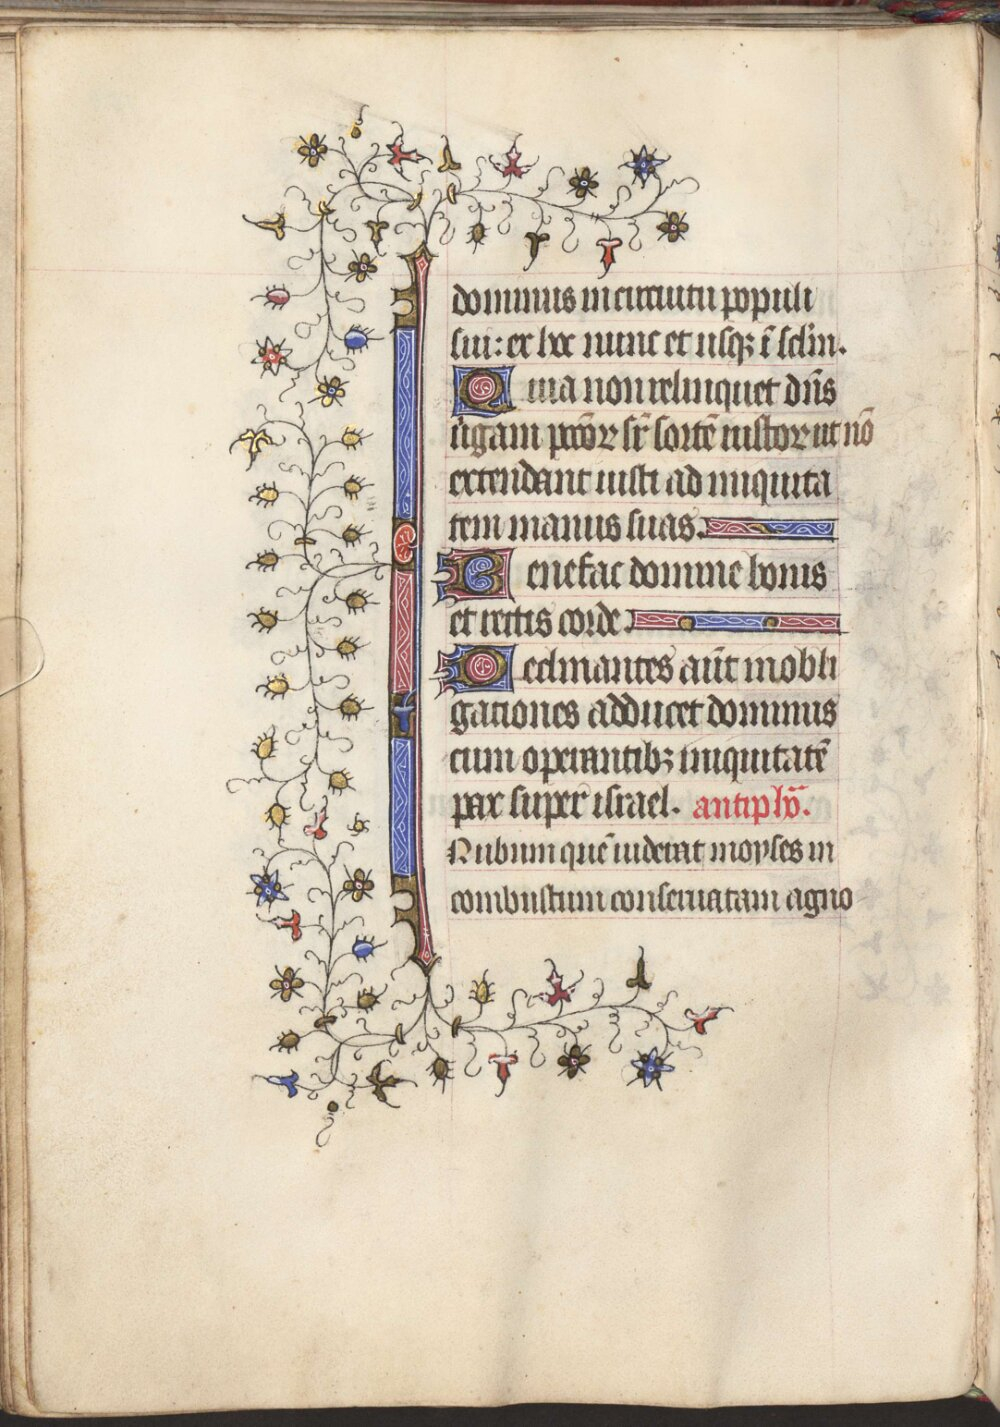 dominus in circuitu populi
sui: ex hoc nunc et usqꝫ ī sclm̄.
Quia non relinquet dn̄s
uīgam pctōꝝ sr̄ sortē iustoꝝ ut nō
extendant iusti ad iniquita
tem manus suas.
Benefac domine bonis
et rectis corde.
Declinantes aūt in obli
gationes adducet dominus
cum operantibꝫ iniquitatē
pax super israel. antiph̄o.
Rubum quē uiderat moyses in
combustum conseruatam agno